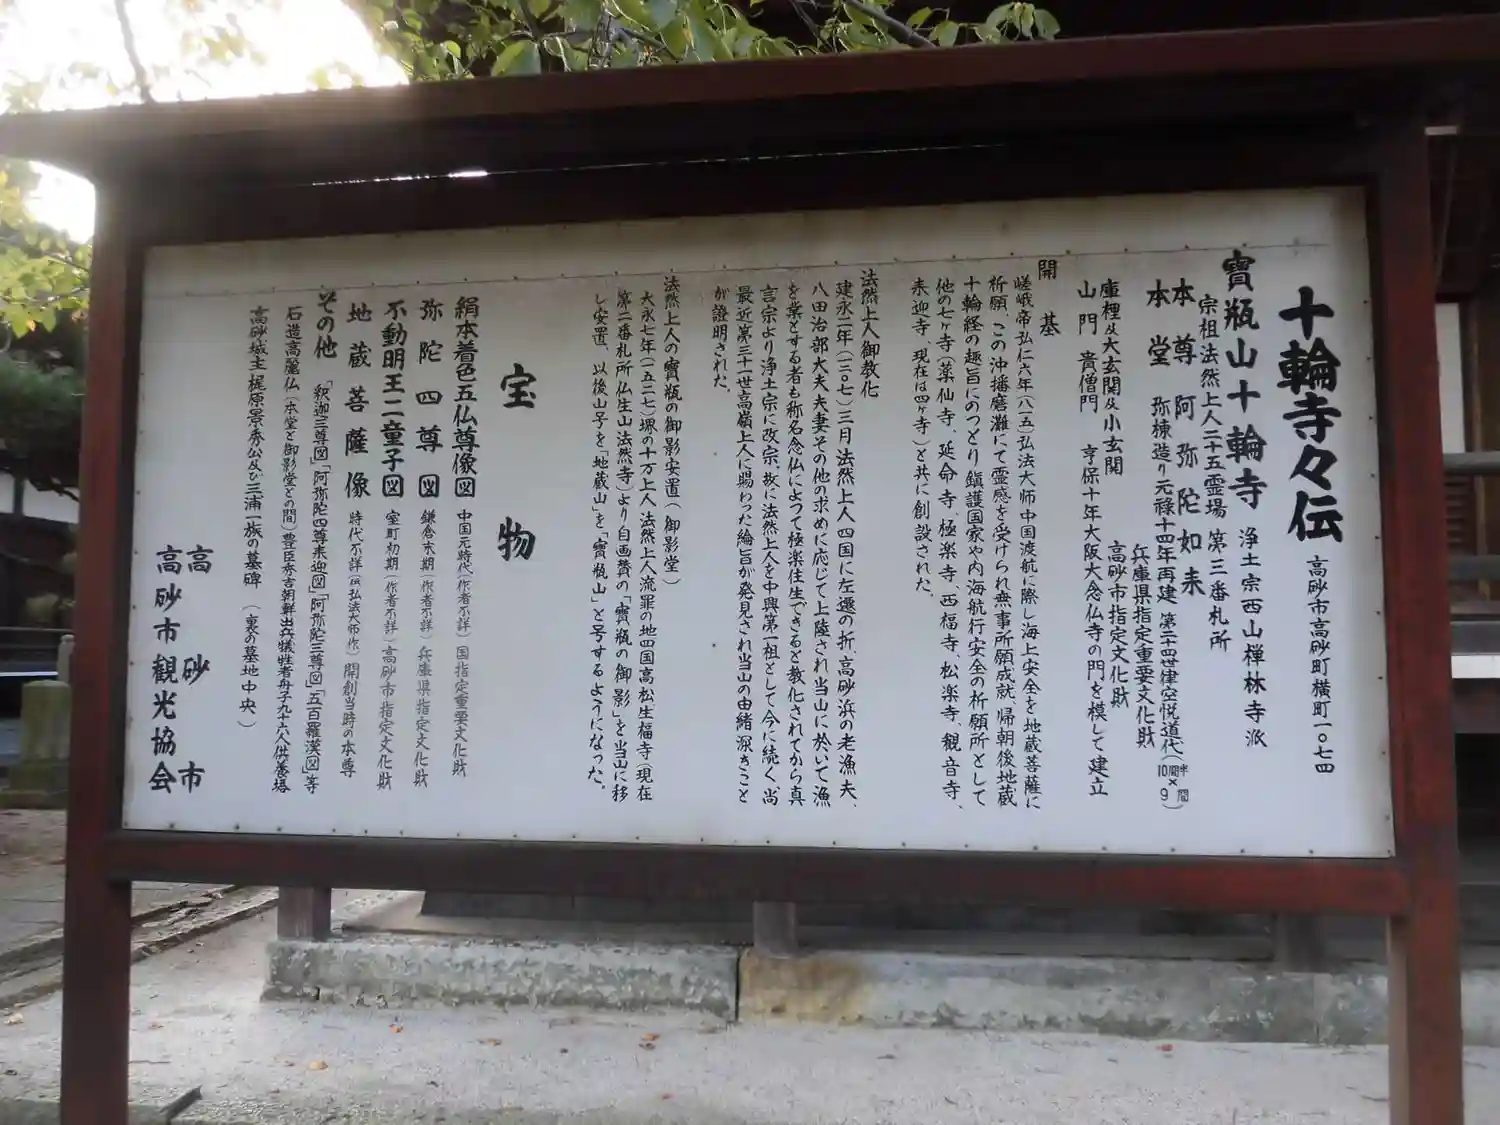 十輪寺々伝 高砂市高砂町横町一〇七四
寶瓶山十輪寺 浄土宗西山禅林寺派
宗祖法然上人二十五霊場 第三番札所
本尊 阿弥陀如来
本堂 弥棟造り元祿十四年再建 第二十四世律空悦道代(10間半×9間)
兵庫県指定重要文化財
庫裡及大玄関及小玄関 高砂市指定文化財
山門 貴僧門 亨保十年大阪大念仏寺の門を模して建立
開基
嵯峨帝弘仁六年(八一五)弘法大师中国渡航に際し海上安全を地蔵菩薩に
祈願、この沖播磨灘にて霊感を受けられ無事所願成就、帰朝後地蔵
十輪経の趣旨にのつとり鎭護国家や内海航行安全の祈願所として
他の七ヶ寺(薬仙寺、延命寺、極楽寺、西福寺、松楽寺、観音寺、
来迎寺、現在は四ヶ寺)と共に創設された。
法然上人御教化
建永二年(一二〇七)三月法然上人四国に左遷の折、高砂浜の老漁夫、
八田治部大夫夫妻その他の求めに応じて上陸され当山に於いて漁
を業とする者も称名念仏によつて極楽往生できると教化されてから真
言宗より浄土宗に改宗、故に法然上人を中興第一祖として今に続く、尚
最近第三十世高嶺上人に賜わった綸旨が発見され当山の由緒深きこと
が證明された。
法然上人の寶瓶の御影安置(御影堂)
大永七年(一五二七)堺の十万上人、法然上人流罪の地四国高松生福寺(現在
第二番札所仏生山法然寺)より自画賛の「寶瓶の御影」を当山に移
し安置、以後山子を「地蔵山」を「寶瓶山」と号するようになった。
宝物
絹本着色五仏尊像図 中国元時代(作者不詳)国指定重要文化財
弥陀四尊図 鎌倉末期(作者不詳)兵庫県指定文化財
不動明王二童子図 室町初期(作者不詳)高砂市指定文化財
地蔵菩薩像 時代不詳(伝弘法大师作)開創当時の本尊
その他 「釈迦三尊図」「阿弥陀四尊来迎図」「阿弥陀三尊図」「五百羅漢図」等
石造高麗仏(本堂と御影堂との間)豊臣秀吉朝鮮出兵犠牲者舟子九十六人供養塔
高砂城主梶原景秀公及び三浦一族の墓碑 (裏の墓地中央)
高砂市
高砂市観光協会